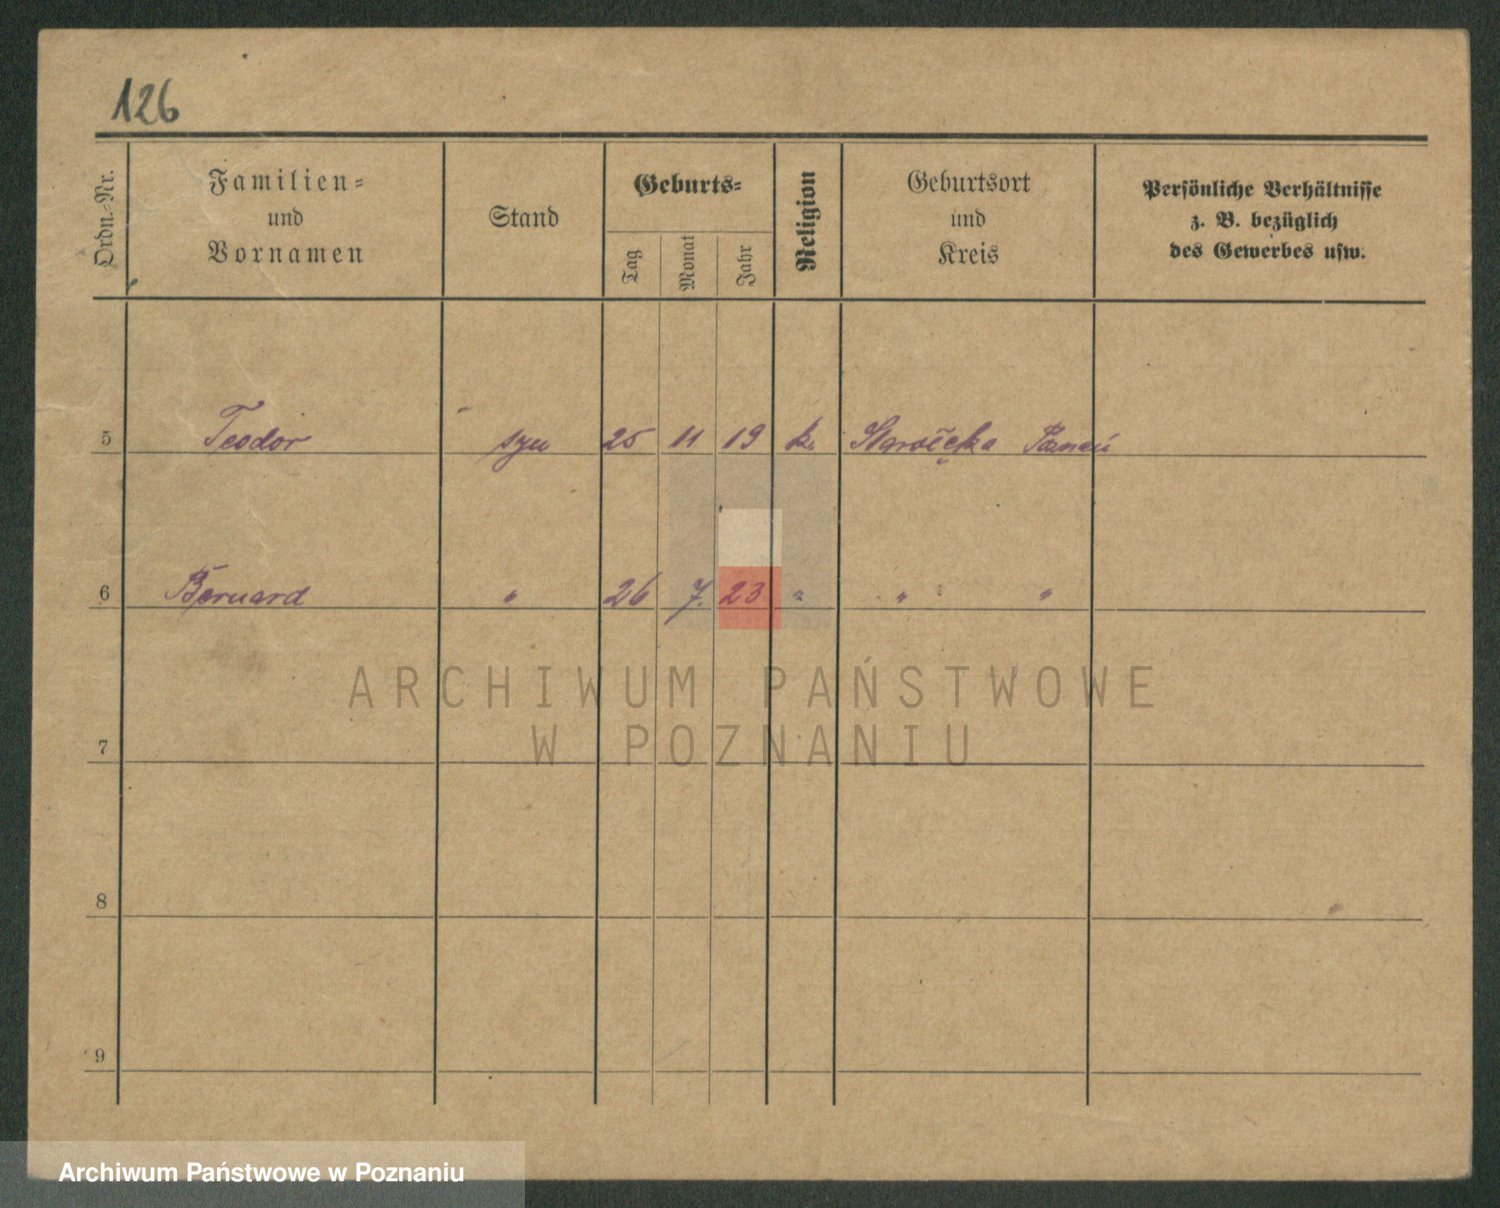 126
Ordn.-Nr.
Familien-
und
Vornamen
Stand
Geburts-
Tag
Monat
Jahr
Religion
Geburtsort
und
Kreis
Persönliche Verhältnisse
z. B. bezüglich
des Gewerbes usw.
5 Teodor syn 25 11 19 k. Starołęka Poznań
6 Bernard " 26 7. 23 " " "
ARCHIWUM PAŃSTWOWE
W POZNANIU
7
8
9
Archiwum Państwowe w Poznaniu